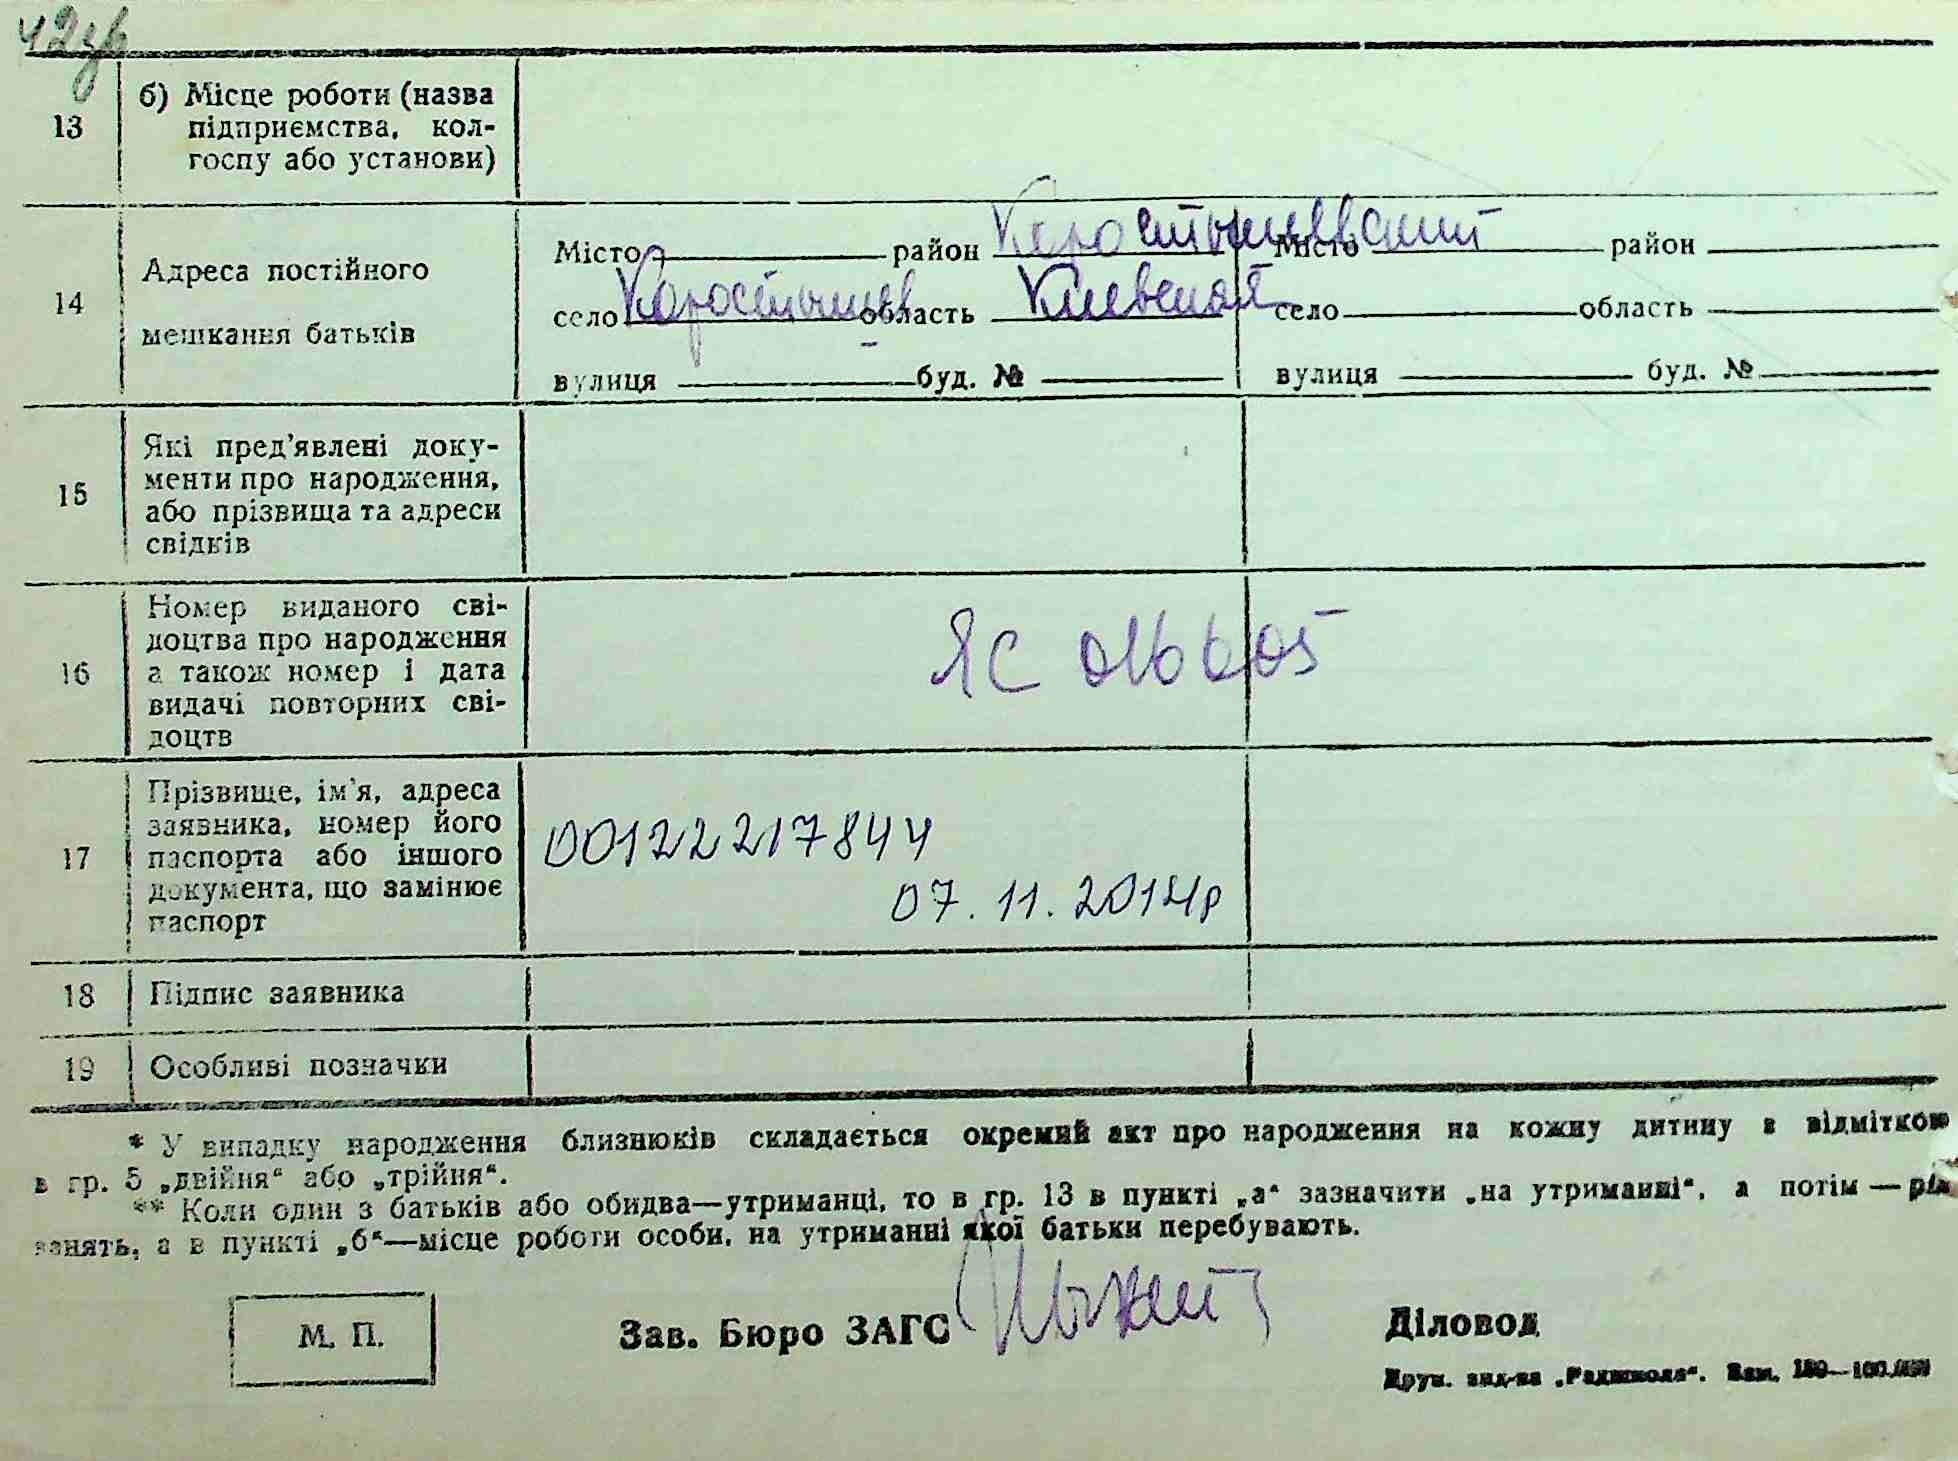 13
б) Місце роботи (назва
підприємства, кол-
госпу або установи)
14
Адреса постійного
мешкання батьків
Місто район Коростышевский
село Коростышев область Киевская
вулиця буд. №
Місто район
село область
вулиця буд. №
15
Які пред’явлені доку-
менти про народження,
або прізвища та адреси
свідків
16
Номер виданого сві-
доцтва про народження
а також номер і дата
видачі повторних сві-
доцтв
ЯС 016605
17
Прізвище, ім’я, адреса
заявника, номер його
паспорта або іншого
документа, що замінює
паспорт
00122217844
07.11.2014р
18
Підпис заявника
19
Особливі позначки
* У випадку народження близнюків складається окремий акт про народження на кожну дитину з відміткою
в гр. 5 „двійня“ або „трійня“.
** Коли один з батьків або обидва—утриманці, то в гр. 13 в пункті „а“ зазначити „на утриманні“, а потім — рід
занять, а в пункті „б“—місце роботи особи, на утриманні якої батьки перебувають.
М. П.
Зав. Бюро ЗАГС
Діловод
Друк. вид-ва „Радшкола“. Зам.